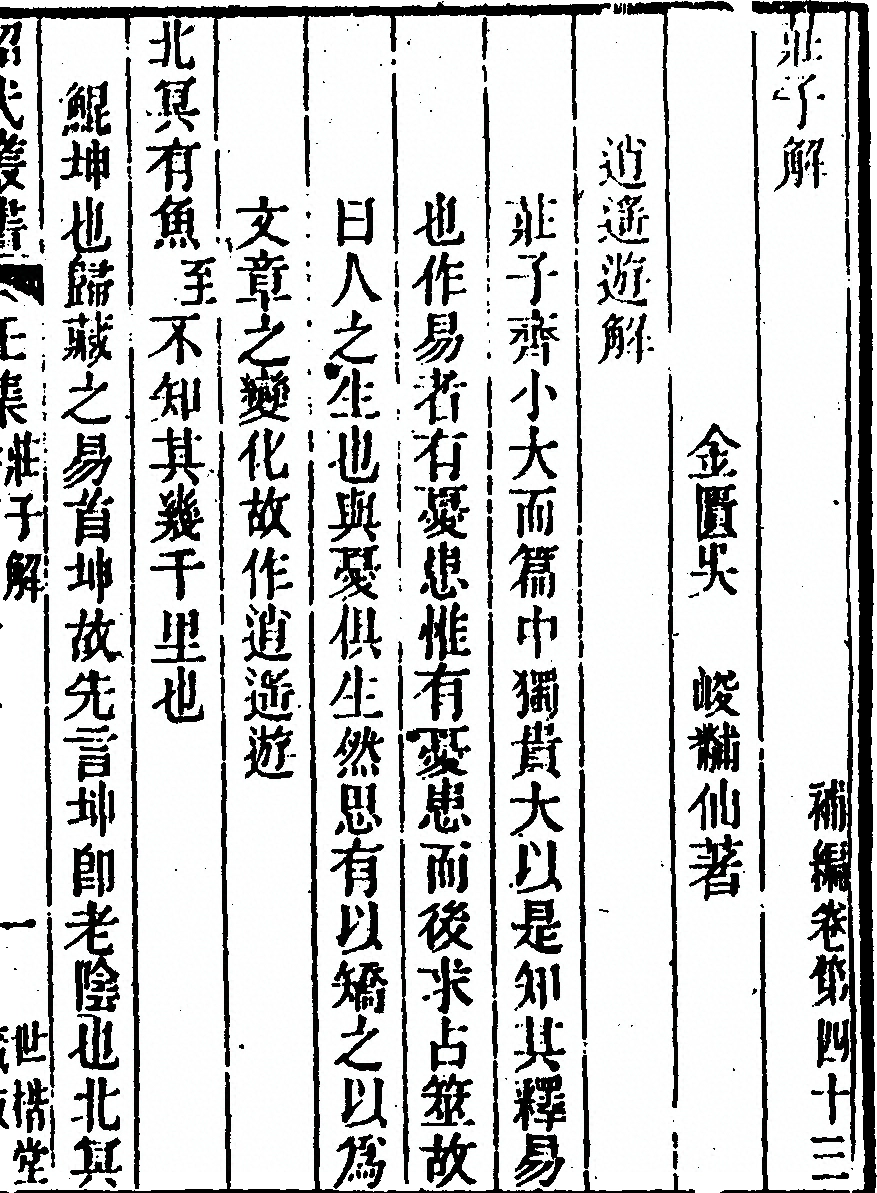 莊子解
補編卷第四十三
金匱吳　峻黼仙著
逍遙遊解
莊子齊小大而篇中獨貴大以是知其釋易
也作易者有憂患惟有憂患而後求占筮故
曰人之生也與憂俱生然思有以矯之以爲
文章之變化故作逍遙遊
北冥有魚至不知其幾千里也
鯤坤也歸藏之易首坤故先言坤卽老陰也北冥
昭代叢書
壬集
莊子解
一
世楷堂
藏板